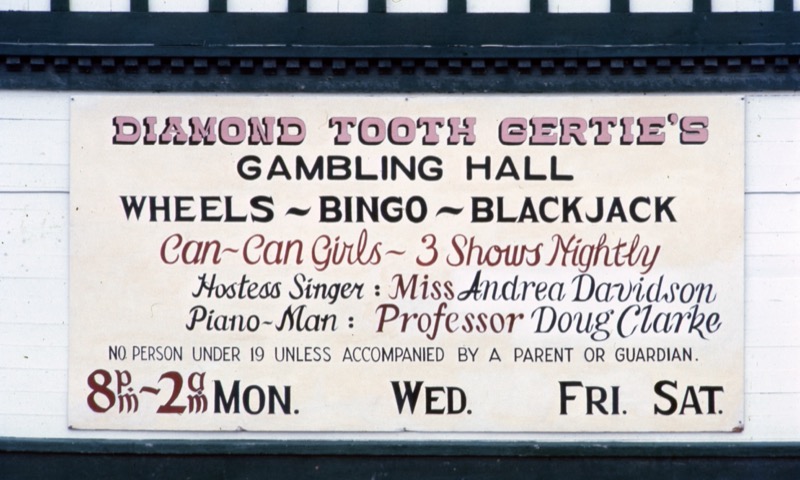 DIAMOND TOOTH GERTIE'S
GAMBLING HALL
WHEELS ~ BINGO ~ BLACKJACK
Can~Can Girls~ 3 Shows Nightly
Hostess Singer : Miss Andrea Davidson
Piano-Man : Professor Doug Clarke
NO PERSON UNDER 19 UNLESS ACCOMPANIED BY A PARENT OR GUARDIAN.
8pm~2am MON. WED. FRI. SAT.